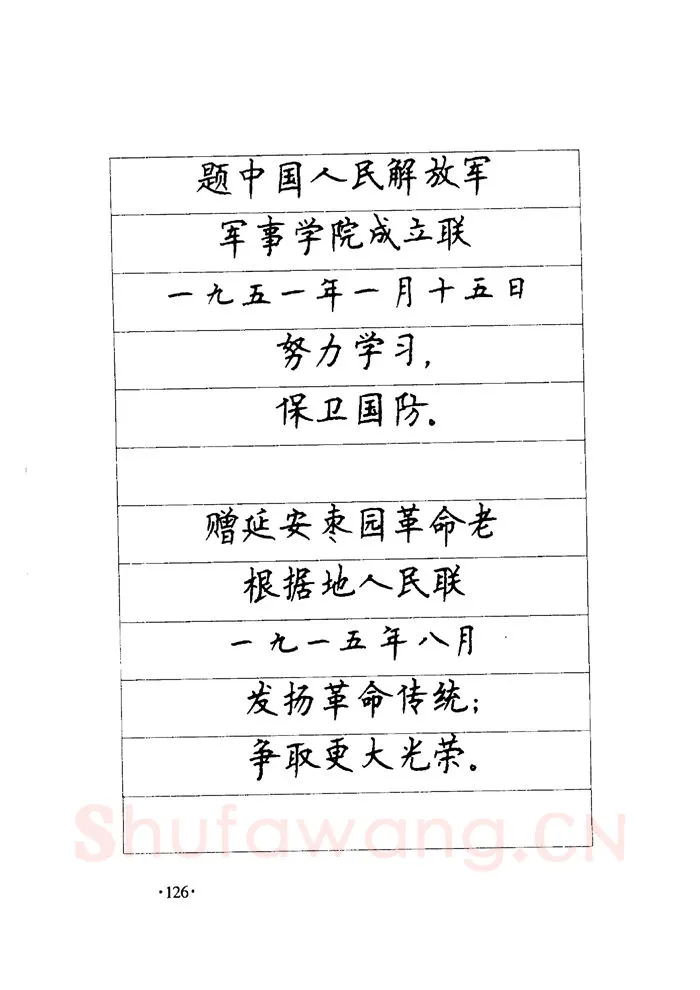 题中国人民解放军
军事学院成立联
一九五一年一月十五日
努力学习，
保卫国防。
赠延安枣园革命老
根据地人民联
一九一五年八月
发扬革命传统；
争取更大光荣。
Shufawang.CN
·126·